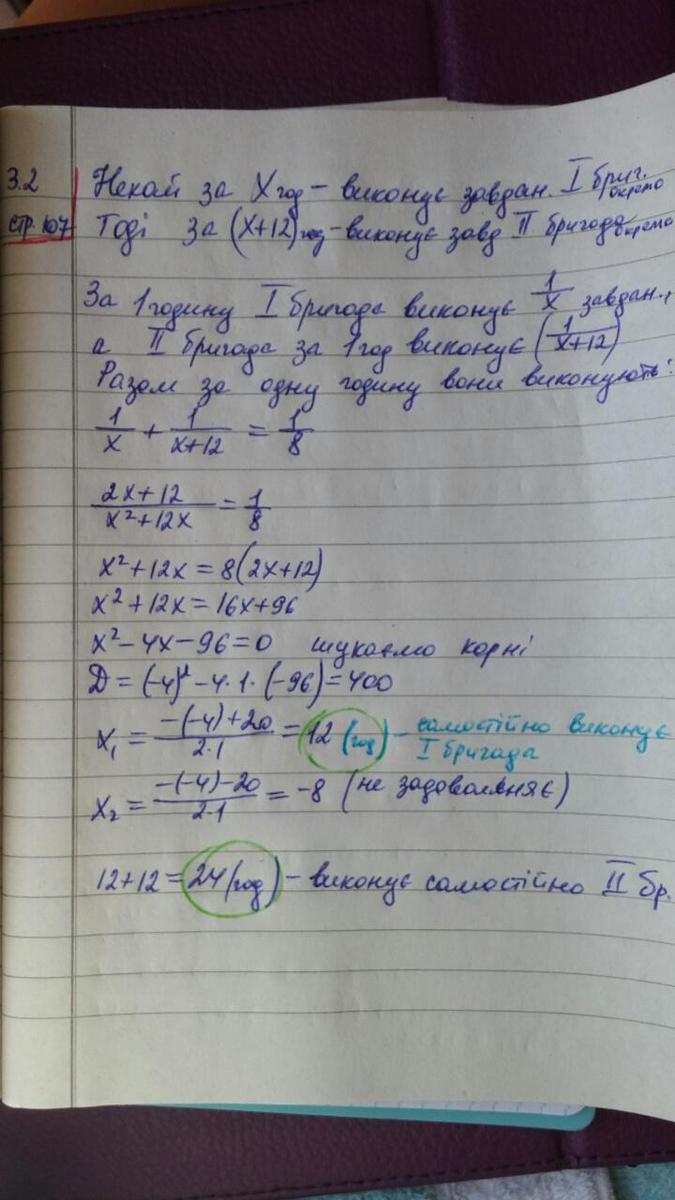 3.2 Нехай за X год – виконує завдан. I бриг. окремо
стр. 107 Тоді за (X+12) год – виконує завд II бригада окремо
За 1 годину I бригада виконує 1/x завдан.,
а II бригада за 1 год виконує (1/x+12)
Разом за одну годину вони виконують:
1/x + 1/x+12 = 1/8
2x+12/x²+12x = 1/8
x²+12x = 8(2x+12)
x²+12x = 16x+96
x²-4x-96=0 шукаємо корні
D = (-4)² - 4·1·(-96) = 400
x₁ = -(-4)+20/2·1 = 12 (год) – самостійно виконує
I бригада
x₂ = -(-4)-20/2·1 = -8 (не задовольняє)
12+12=24 (год) – виконує самостійно II бр.